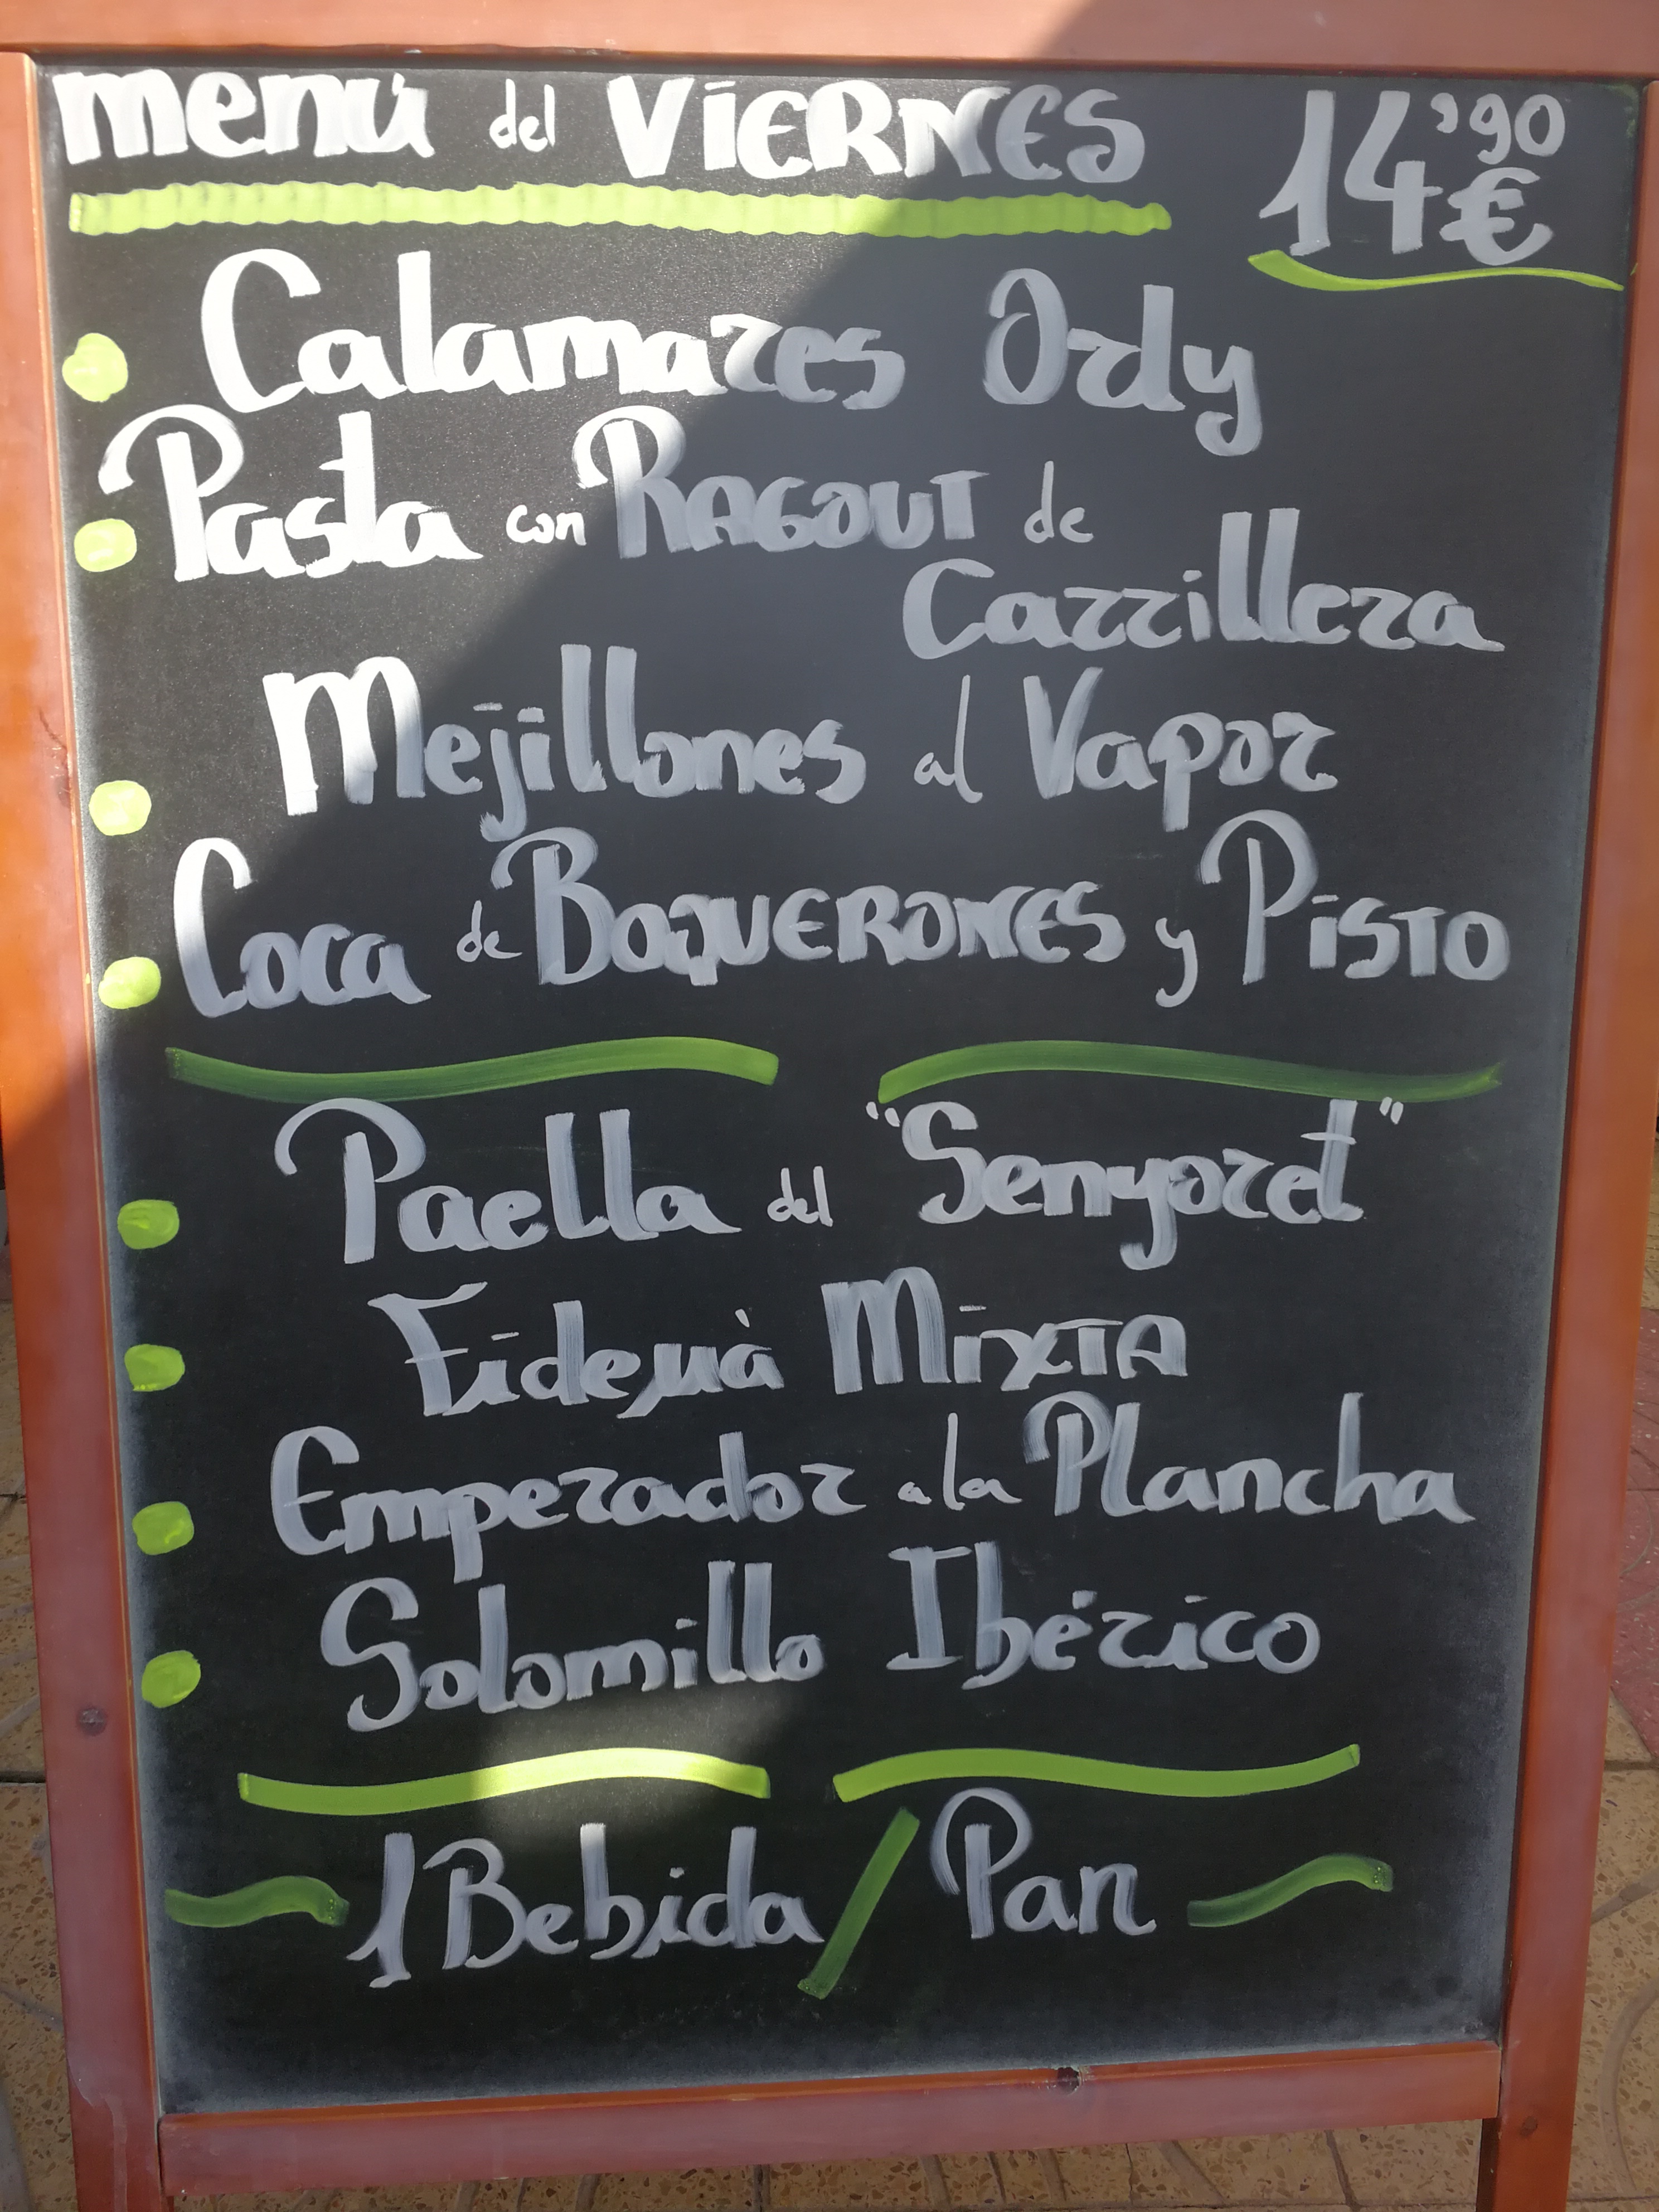 menú del VIERNES 14'90€
Calamares Orly
Pasta con RAGOUT de
Carrillera
Mejillones al Vapor
Coca de BOQUERONES y PISTO
Paella del "Senyoret"
Fideuà MIXTA
Emperador a la Plancha
Solomillo Ibérico
1 Bebida / Pan